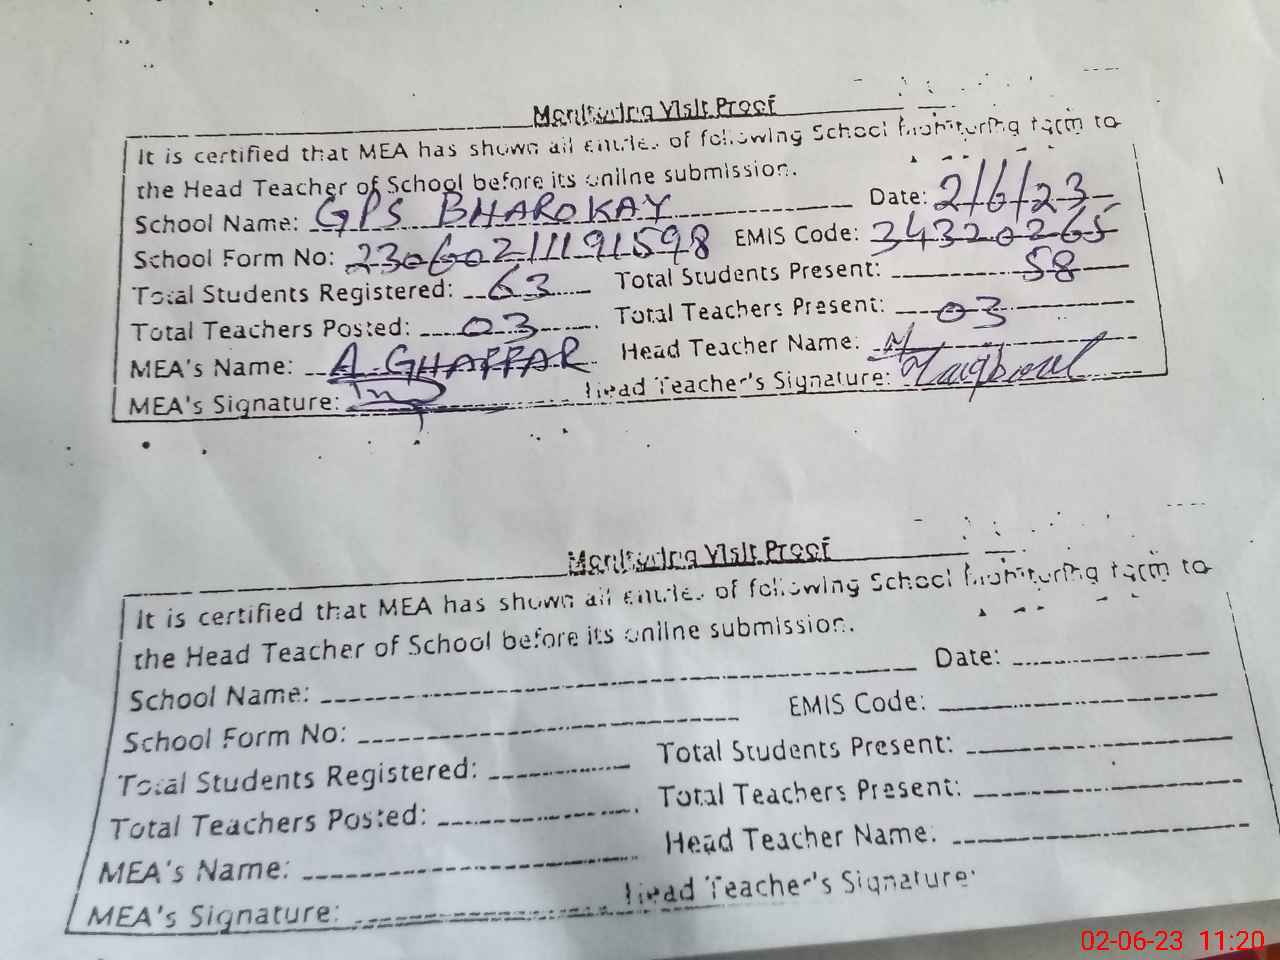 Monitoring Visit Proof
It is certified that MEA has shown all entries of following School Monitoring form to
the Head Teacher of School before its online submission.
School Name: GPS BHAROKAY Date: 2/6/23
School Form No: 2306021119 1598 EMIS Code: 34320265
Total Students Registered: 63 Total Students Present: 58
Total Teachers Posted: 03 Total Teachers Present: 03
MEA's Name: A. GHAFFAR Head Teacher Name: M
MEA's Signature: Head Teacher's Signature:
Monitoring Visit Proof
It is certified that MEA has shown all entries of following School Monitoring form to
the Head Teacher of School before its online submission.
School Name: Date:
School Form No: EMIS Code:
Total Students Registered: Total Students Present:
Total Teachers Posted: Total Teachers Present:
MEA's Name: Head Teacher Name:
MEA's Signature: Head Teacher's Signature:
02-06-23 11:20